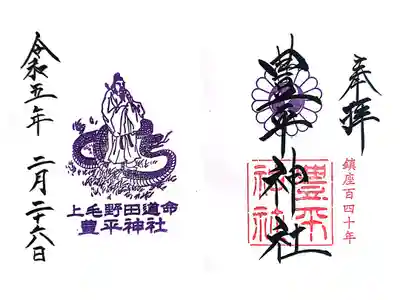 奉拝
鎮座百四十年
豊平神社
豊平神社
令和五年 二月二十六日
上毛野田道命
豊平神社